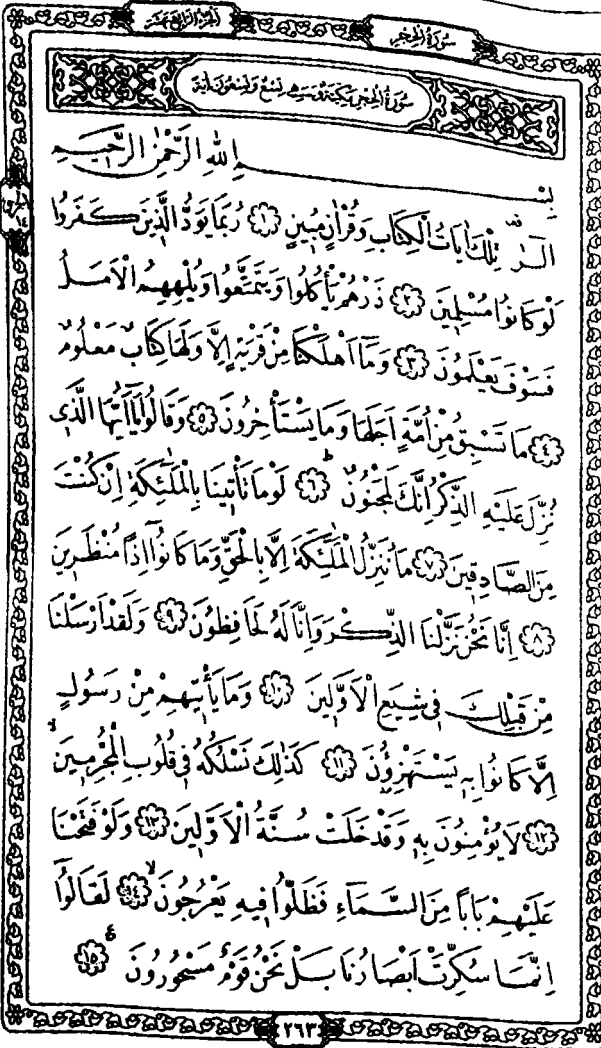 الجزء الرابع عشر
سورة الحجر
سُورَةُ الْحِجْرِ مَكِّيَّةٌ وَهِيَ تِسْعٌ وَتِسْعُونَ اٰيَةً
بِسْمِ اللهِ الرَّحْمٰنِ الرَّحٖيمِ
الٓرٰ تِلْكَ اٰيَاتُ الْكِتَابِ وَقُرْاٰنٍ مُبٖينٍ ﴿١﴾ رُبَمَا يَوَدُّ الَّذٖينَ كَفَرُوا
لَوْ كَانُوا مُسْلِمٖينَ ﴿٢﴾ ذَرْهُمْ يَأْكُلُوا وَيَتَمَتَّعُوا وَيُلْهِهِمُ الْاَمَلُ
فَسَوْفَ يَعْلَمُونَ ﴿٣﴾ وَمَٓا اَهْلَكْنَا مِنْ قَرْيَةٍ اِلَّا وَلَهَا كِتَابٌ مَعْلُومٌ
﴿٤﴾ مَا تَسْبِقُ مِنْ اُمَّةٍ اَجَلَهَا وَمَا يَسْتَأْخِرُونَ ﴿٥﴾ وَقَالُوا يَٓا اَيُّهَا الَّذٖى
نُزِّلَ عَلَيْهِ الذِّكْرُ اِنَّكَ لَمَجْنُونٌ ﴿٦﴾ لَوْ مَا تَأْتٖينَا بِالْمَلٰٓئِكَةِ اِنْ كُنْتَ
مِنَ الصَّادِقٖينَ ﴿٧﴾ مَا نُنَزِّلُ الْمَلٰٓئِكَةَ اِلَّا بِالْحَقِّ وَمَا كَانُٓوا اِذًا مُنْظَرٖينَ
﴿٨﴾ اِنَّا نَحْنُ نَزَّلْنَا الذِّكْرَ وَاِنَّا لَهُ لَحَافِظُونَ ﴿٩﴾ وَلَقَدْ اَرْسَلْنَا
مِنْ قَبْلِكَ فٖى شِيَعِ الْاَوَّلٖينَ ﴿١٠﴾ وَمَا يَأْتٖيهِمْ مِنْ رَسُولٍ
اِلَّا كَانُوا بِهٖ يَسْتَهْزِؤُنَ ﴿١١﴾ كَذٰلِكَ نَسْلُكُهُ فٖى قُلُوبِ الْمُجْرِمٖينَ
﴿١٢﴾ لَا يُؤْمِنُونَ بِهٖ وَقَدْ خَلَتْ سُنَّةُ الْاَوَّلٖينَ ﴿١٣﴾ وَلَوْ فَتَحْنَا
عَلَيْهِمْ بَابًا مِنَ السَّمَٓاءِ فَظَلُّوا فٖيهِ يَعْرُجُونَ ﴿١٤﴾ لَقَالُٓوا
اِنَّمَا سُكِّرَتْ اَبْصَارُنَا بَلْ نَحْنُ قَوْمٌ مَسْحُورُونَ ﴿١٥﴾
٢٦٣